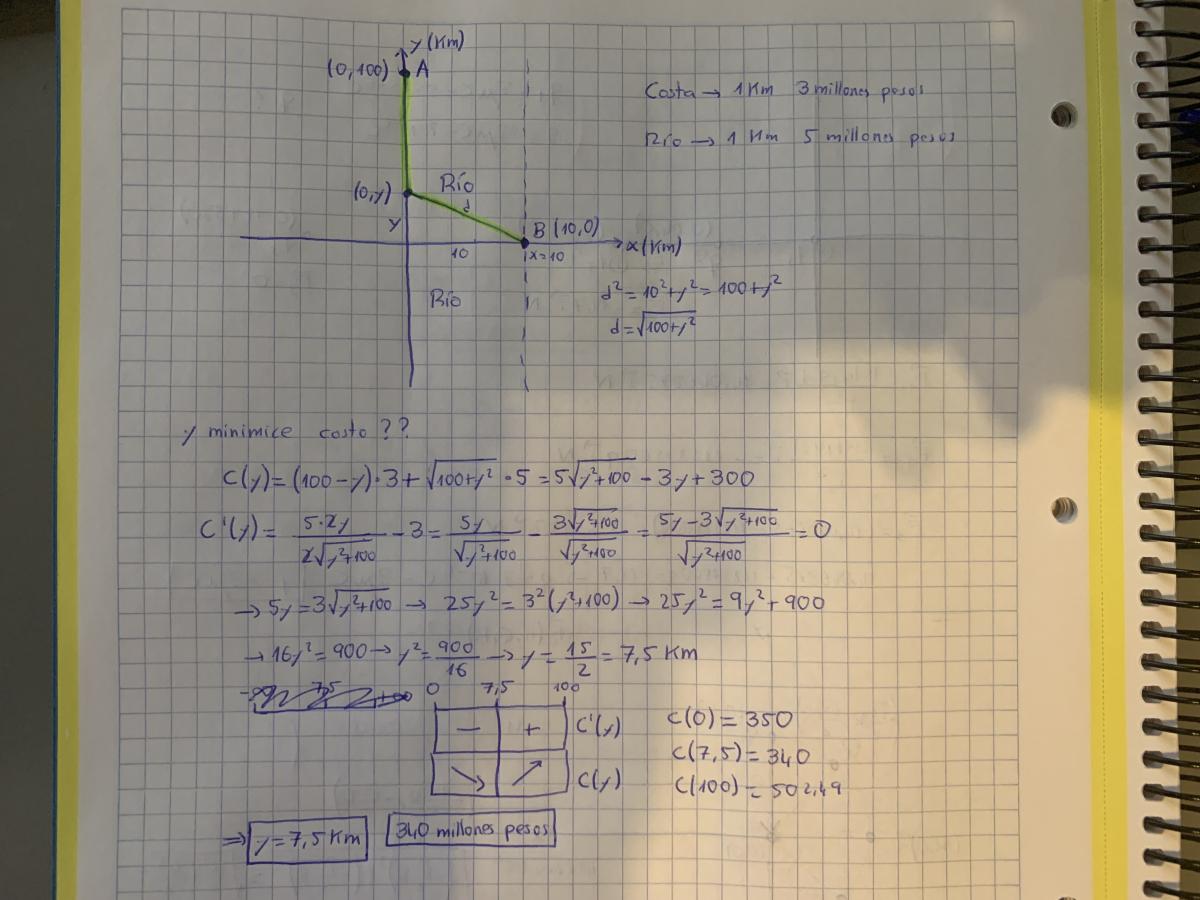 y (Km)
(0,100) A
Costa → 1 Km 3 millones pesos
Río → 1 Km 5 millones pesos
(0,y) Río
d
y
B (10,0)
10 x=10 x (Km)
Río
d² = 10² + y² = 100 + y²
d = √(100+y²)
y minimice costo ??
C(y) = (100 − y)·3 + √(100+y²) · 5 = 5√(y²+100) − 3y + 300
C'(y) = 5·2y / 2√(y²+100) − 3 = 5y / √(y²+100) − 3√(y²+100) / √(y²+100) = (5y − 3√(y²+100)) / √(y²+100) = 0
→ 5y = 3√(y²+100) → 25y² = 3²(y²+100) → 25y² = 9y² + 900
→ 16y² = 900 → y² = 900/16 → y = 15/2 = 7,5 Km
0 7,5 100
− + C'(y)
↘ ↗ C(y)
C(0) = 350
C(7,5) = 340
C(100) = 502,49
⇒ y = 7,5 Km 340 millones pesos